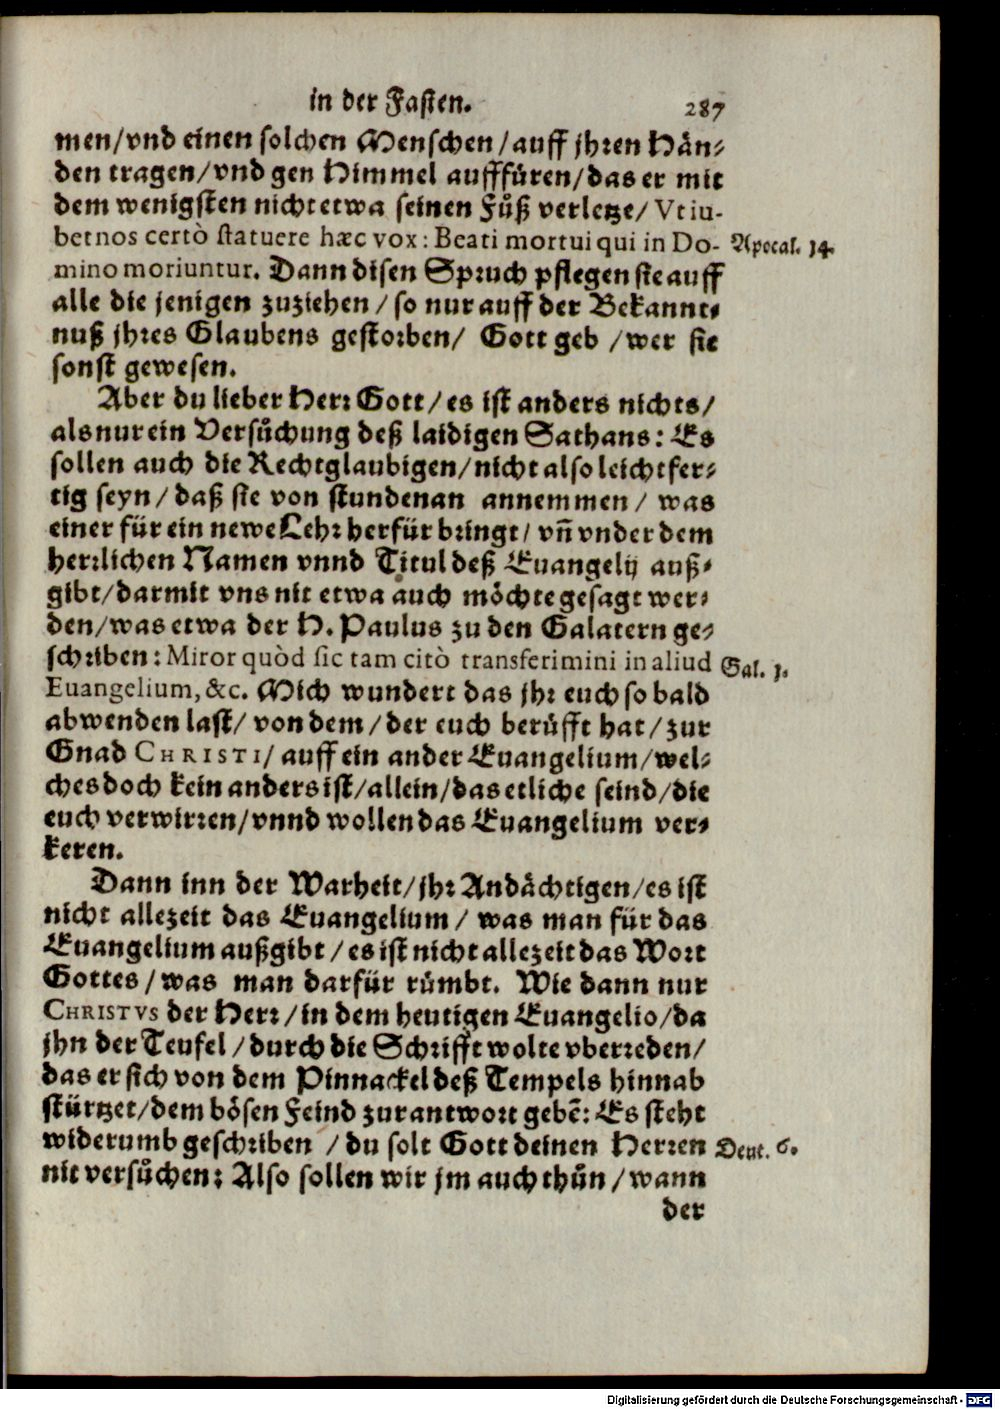 in der Fasten. 287
men/vnd einen solchen Menschen/auff jhren Hän-
den tragen/vnd gen Himmel aufffüren/das er mit
dem wenigsten nicht etwa seinen Fůß verletze/ Vt iu-
bet nos certò statuere hæc vox: Beati mortui qui in Do- Apocal. 14.
mino moriuntur. Dann disen Spruch pflegen sie auff
alle die jenigen zuziehen/so nur auff der Bekannt-
nuß jhres Glaubens gestorben/ Gott geb/wer sie
sonst gewesen.
Aber du lieber Herr Gott/es ist anders nichts/
als nur ein Versůchung deß laidigen Sathans: Es
sollen auch die Rechtglaubigen/nicht also leichtfer-
tig seyn/daß sie von stundenan annemmen/ was
einer für ein newe Lehr herfür bringt/ vñ vnder dem
herrlichen Namen vnnd Titul deß Euangelij auß-
gibt/darmit vns nit etwa auch möchte gesagt wer-
den/was etwa der H. Paulus zu den Galatern ge-
schriben: Miror quòd sic tam citò transferimini in aliud Gal. 1.
Euangelium, &c. Mich wundert das jhr euch so bald
abwenden last/von dem/der euch berůfft hat/zur
Gnad CHRISTI/auff ein ander Euangelium/wel-
ches doch kein anders ist/allein/das etliche seind/die
euch verwirren/vnnd wollen das Euangelium ver-
keren.
Dann inn der Warheit/jhr Andächtigen/es ist
nicht allezeit das Euangelium/ was man für das
Euangelium außgibt/es ist nicht allezeit das Wort
Gottes/was man darfür růmbt. Wie dann nur
CHRISTVS der Herr/in dem heutigen Euangelio/da
jhn der Teufel/durch die Schrifft wolte vberreden/
das er sich von dem Pinnackel deß Tempels hinnab
stürtzet/dem bösen Feind zur antwort gebẽ: Es steht
widerumb geschriben/du solt Gott deinen Herren Deut. 6.
nit versůchen: Also sollen wir jm auch thůn/wann
der
Digitalisierung gefördert durch die Deutsche Forschungsgemeinschaft - DFG